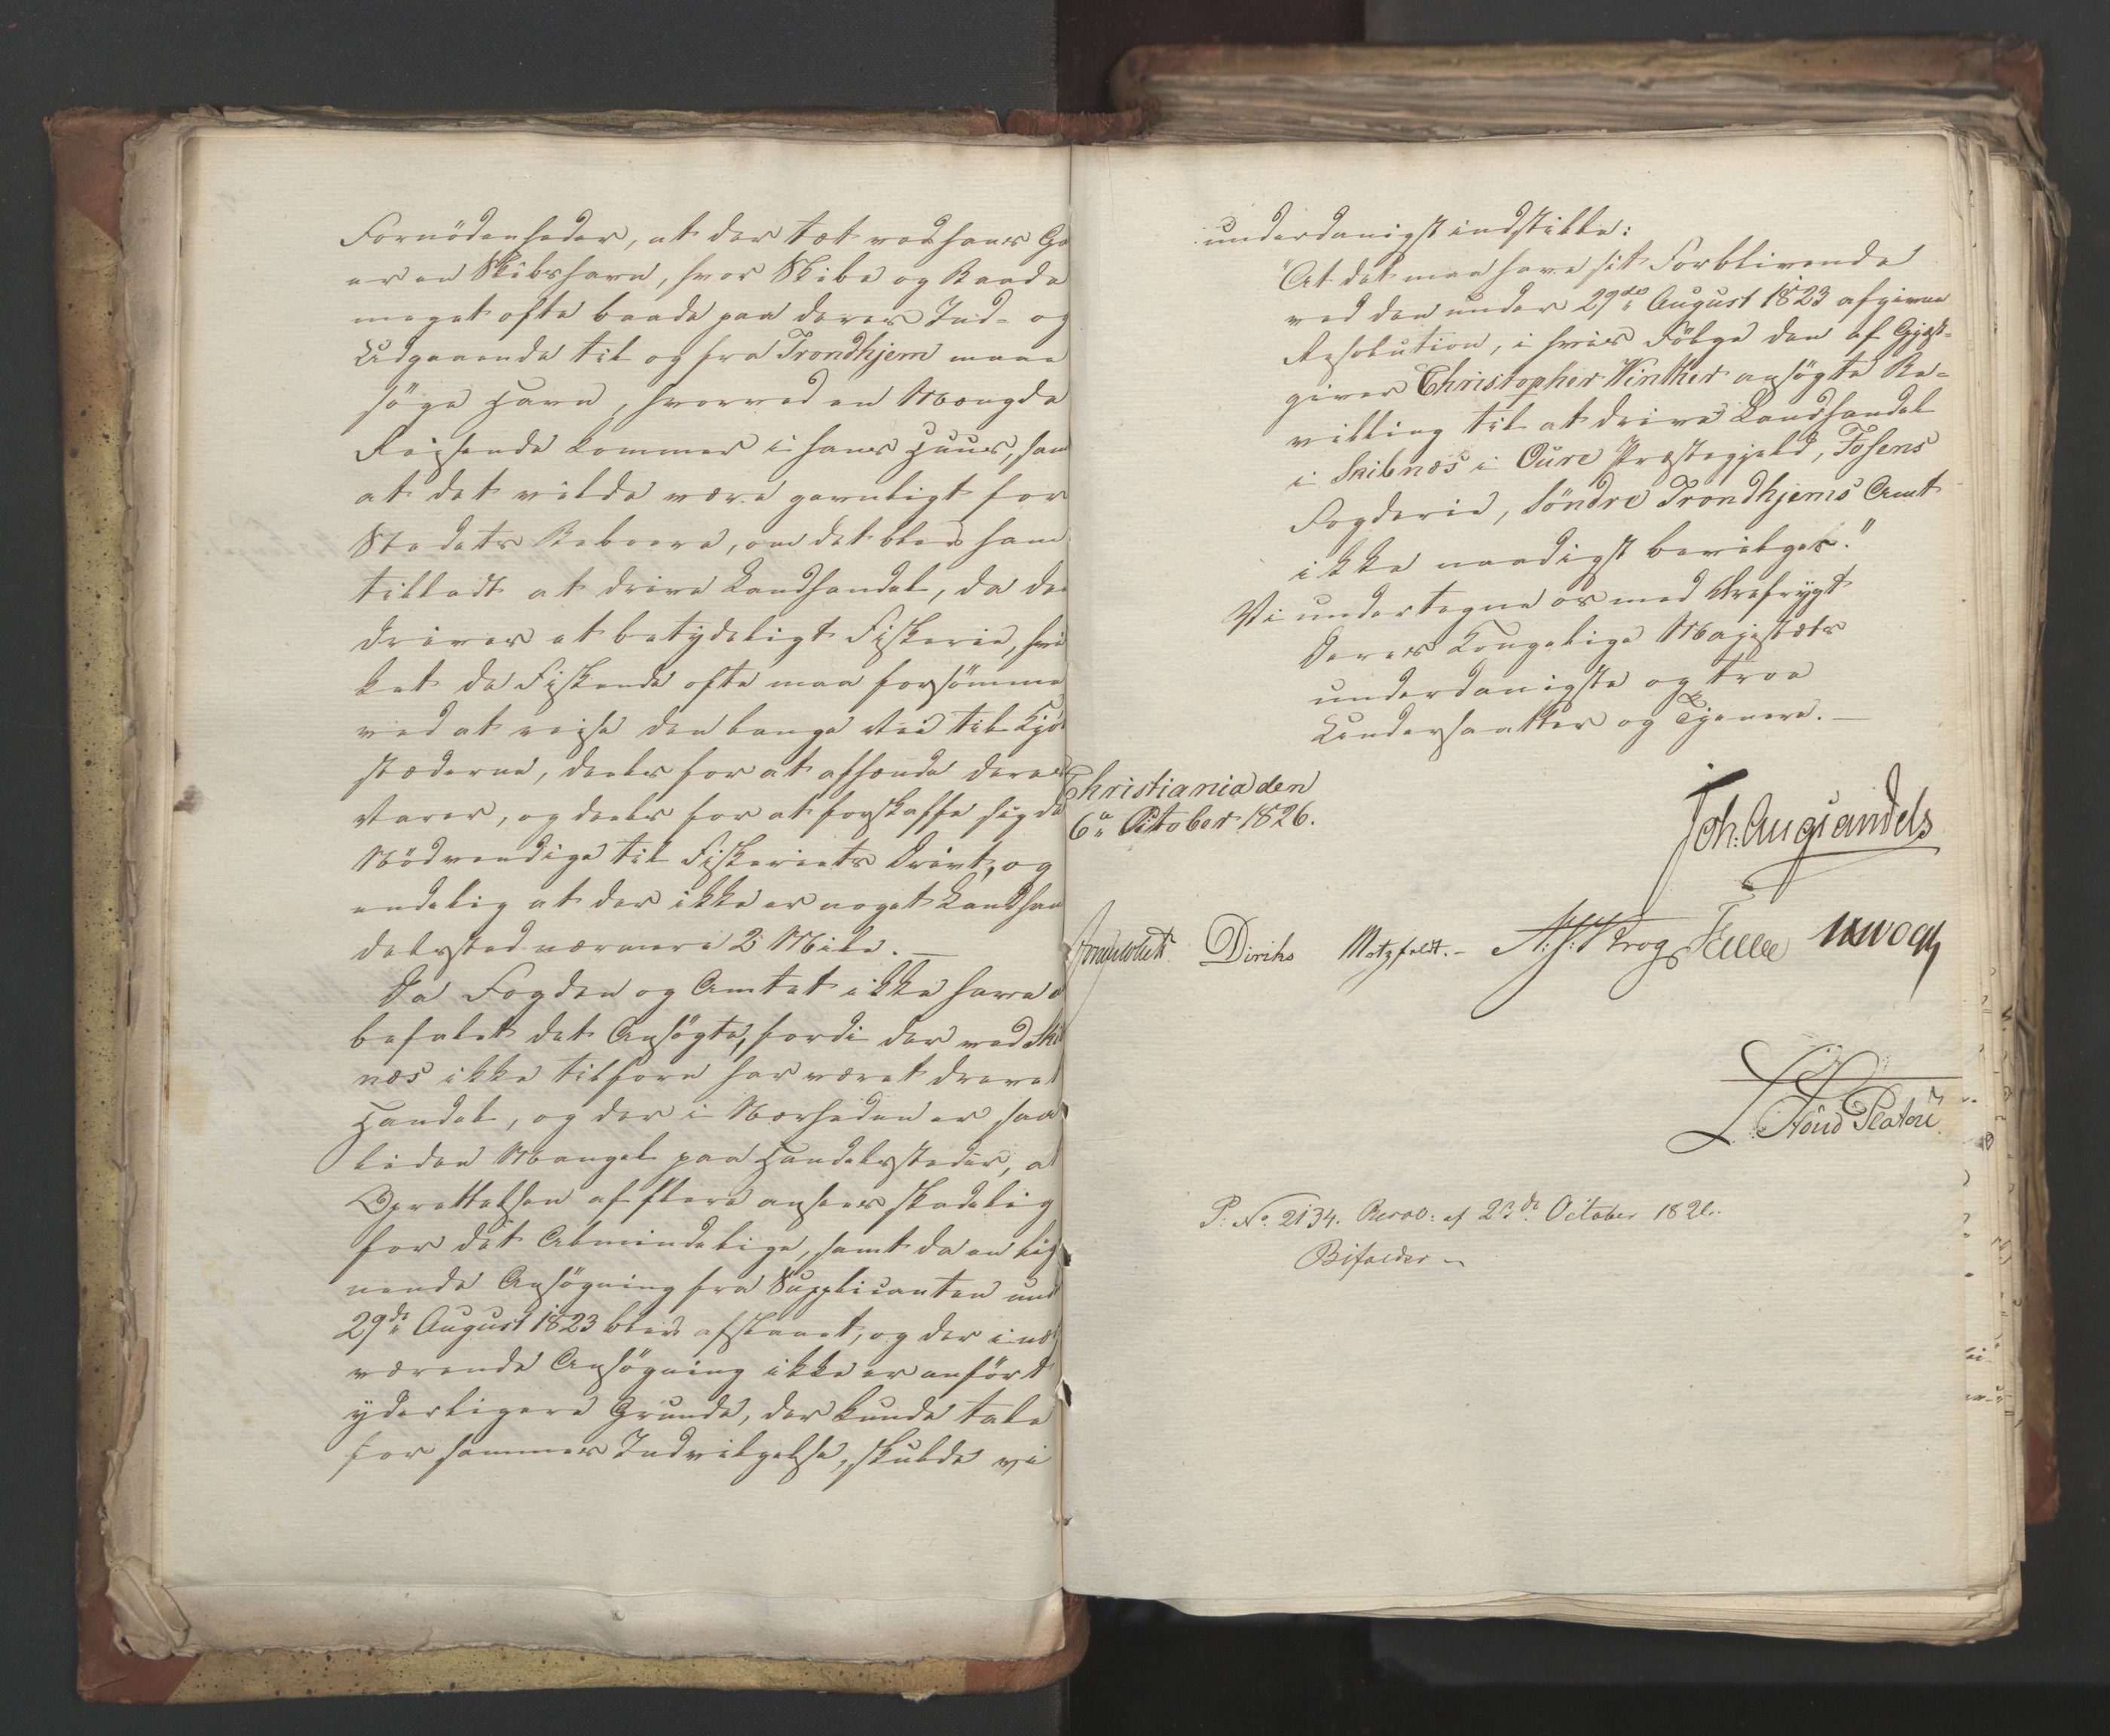 Fornödenheder, at der tæt ved hans Go
er en Skibshavn, hvor Skibe og Baade
meget ofte baade paa deres Ind- og
Udgaaende til og fra Trondhjem maae
söge Havn, hvorved en Mængde
Reisende kommer i hans Huus, sam
at det vilde være gavnligt for
Stedets Beboere, om det blev ham
tilladt at drive Landhandel, da der
drives et betydeligt Fiskerie, hvil
ket de Fiskende ofte maa forsömme
ved at reise den lange Vei til Kjöb
stæderne, deels for at afsende deres
Varer, og deels for at forskaffe sig de
Nödvendige til Fiskeriets Drivt, og
endelig at der ikke er noget Landhan
delssted nærmere 2 Mile. —
Da Fogden og Amtet ikke have an
befalet det Ansögte, fordi der ved Skib
næs ikke tilforn har været drevet
Handel, og der i Nærheden er saa
liden Mangel paa Handelssteder, at
Oprettelsen af flere ansees skadelig
for det Almindelige, samt da en lig
nende Ansögning fra Supplicanten und
29de August 1823 blev afslaaet, og der i nær
værende Ansögning ikke er anfört
yderligere Grunde, der kunde tale
for sammes Indvilgelse, skulde vi
underdanigst indstille:
"At det maa have sit Forblivende
ved den under 29de August 1823 afgivne
Resolution, i hvis Fölge den af Gjæst-
giver Christopher Winther ansögte Be-
villing til at drive Landhandel
i Skibnæs i Oure Præstegjeld, Fosens
Fogderie, Söndre Trondhjems Amt
ikke naadigst bevilges."
Vi undertegne os med Ærefrygt
Deres Kongelige Majestæts
underdanigste og troe
Undersaatter og Tjenere. —
Christiania den
6te October 1826.
Joh. Aug Sandels
Diriks Motzfeldt. - Krog Fasting
P: No. 2134. Resol: af 23de October 1826.
Bifaldes